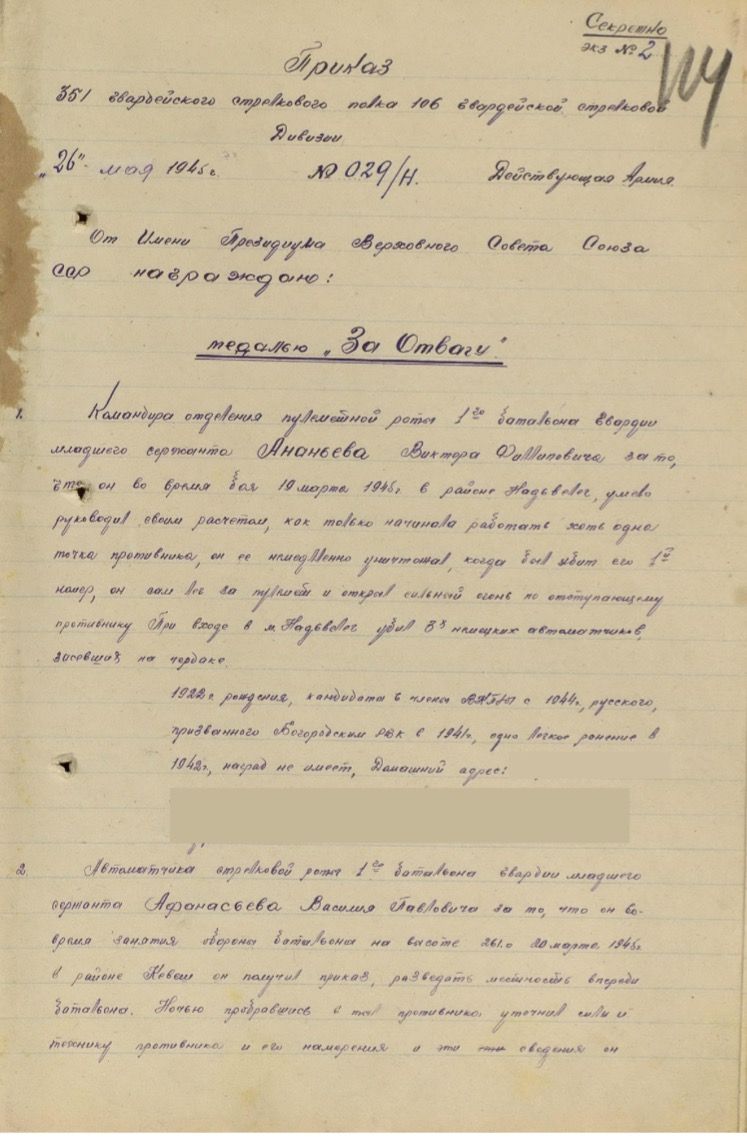 Секретно
экз № 2
Приказ
351 гвардейского стрелкового полка 106 гвардейской стрелковой
Дивизии
"26" мая 1945 г. № 029/н. Действующая Армия
От Имени Президиума Верховного Совета Союза
ССР награждаю:
медалью "За Отвагу".
1. Командира отделения пулеметной роты 1го батальона гвардии
младшего сержанта Ананьева Виктора Филиповича за то,
что он во время боя 19 марта 1945г. в районе Надьвелег, умело
руководил своим расчетом, как только начинала работать хоть одна
точка противника, он ее немедленно уничтожал, когда был убит его 1й
номер, он сам лег за пулемет и открыл сильный огонь по отступающему
противнику При входе в м. Надьвелег убил 3х немецких автоматчиков,
засевших на чердаке.
1922 г рождения, кандидата в члены ВКП(б) с 1944г., русского,
призванного Богородским РВК в 1941г, одно легкое ранение в
1942г., наград не имеет, Домашний адрес:
2 Автоматчика стрелковой роты 1го батальона гвардии младшего
сержанта Афанасьева Василия Павловича за то, что он во-
время занятия обороны батальона на высоте 261.0 20 марта 1945г
в районе он получил приказ, разведать местность впереди
батальона. Ночью пробравшись в тыл противника уточнил силы и
технику противника и его намерения и эти сведения он